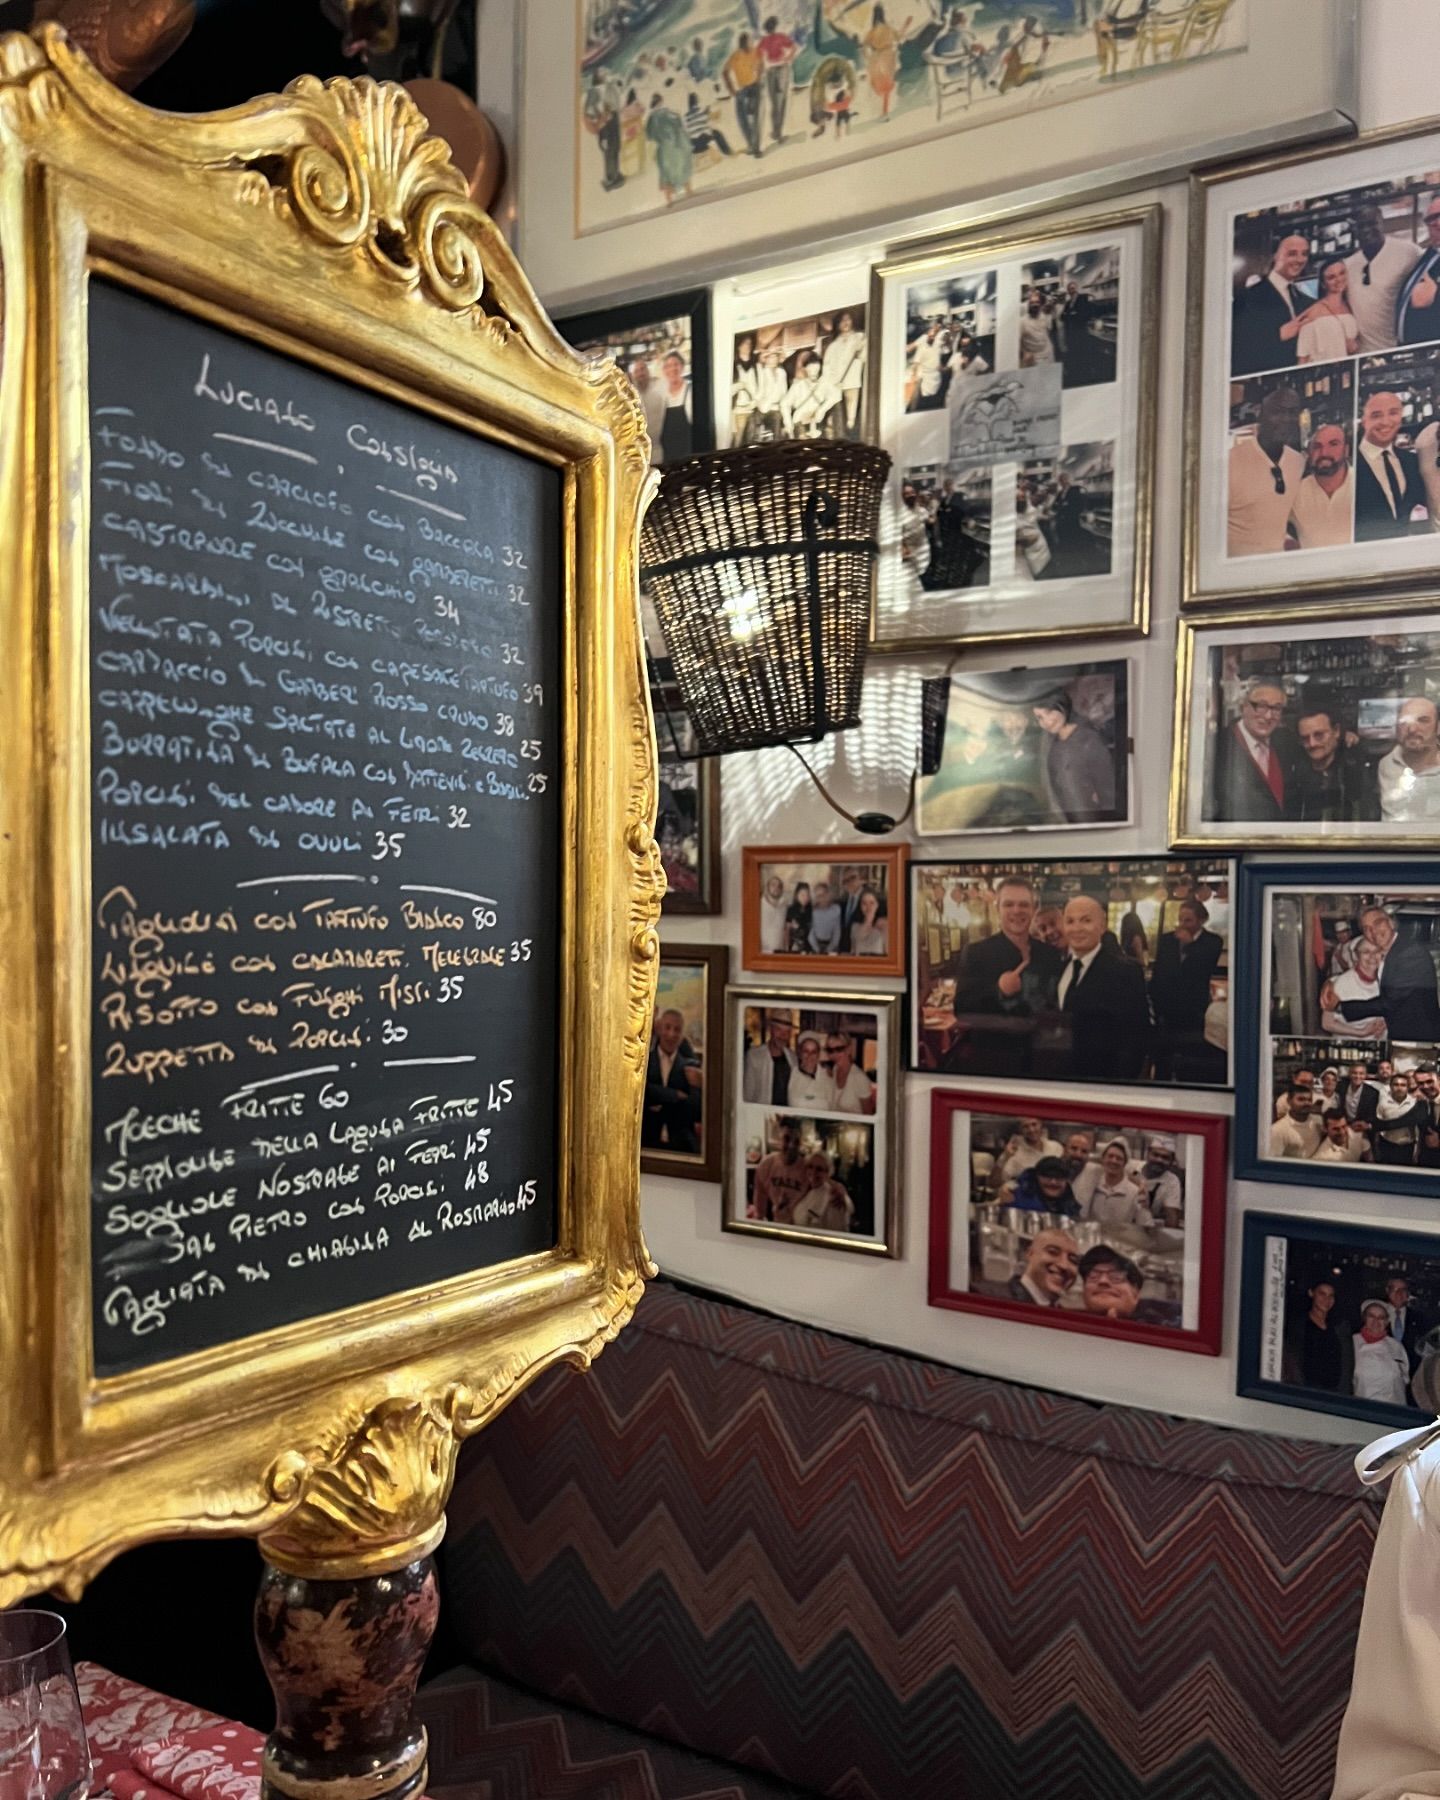 Luciano Consiglia
Fondo di carciofo con baccalà 32
Fiori di zucchine con gamberetti 32
Castraure con granchio 34
Moscardini al ristretto 32
Vellutata porcini con capesante tartufo 39
Carpaccio di gamberi rosso crudo 38
Cappelunghe saltate al 25
Burratina di bufala con datterini e basil. 25
Porcini del Cadore ai ferri 32
Insalata di ovuli 35
Tagliolini con tartufo bianco 80
Linguine con calamaretti, melenzane 35
Risotto con funghi misti 35
Zuppetta di porcini. 30
Moeche fritte 60
Seppioline della laguna fritte 45
Sogliole nostrane ai ferri 45
San Pietro con porcini 48
Tagliata di chianina al rosmarino 45
YALE